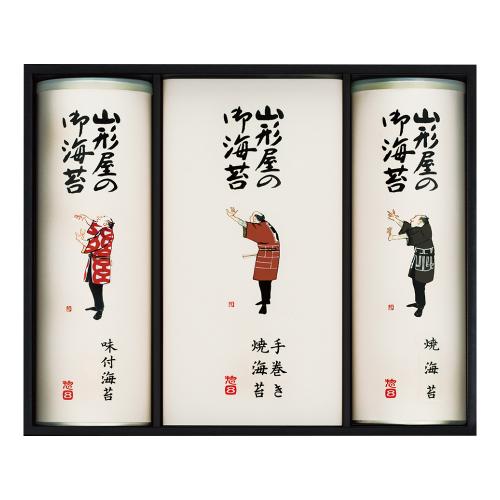 山形屋の
御海苔
味付海苔
惣五
山形屋の
御海苔
手巻き
焼海苔
惣五
山形屋の
御海苔
焼海苔
惣五